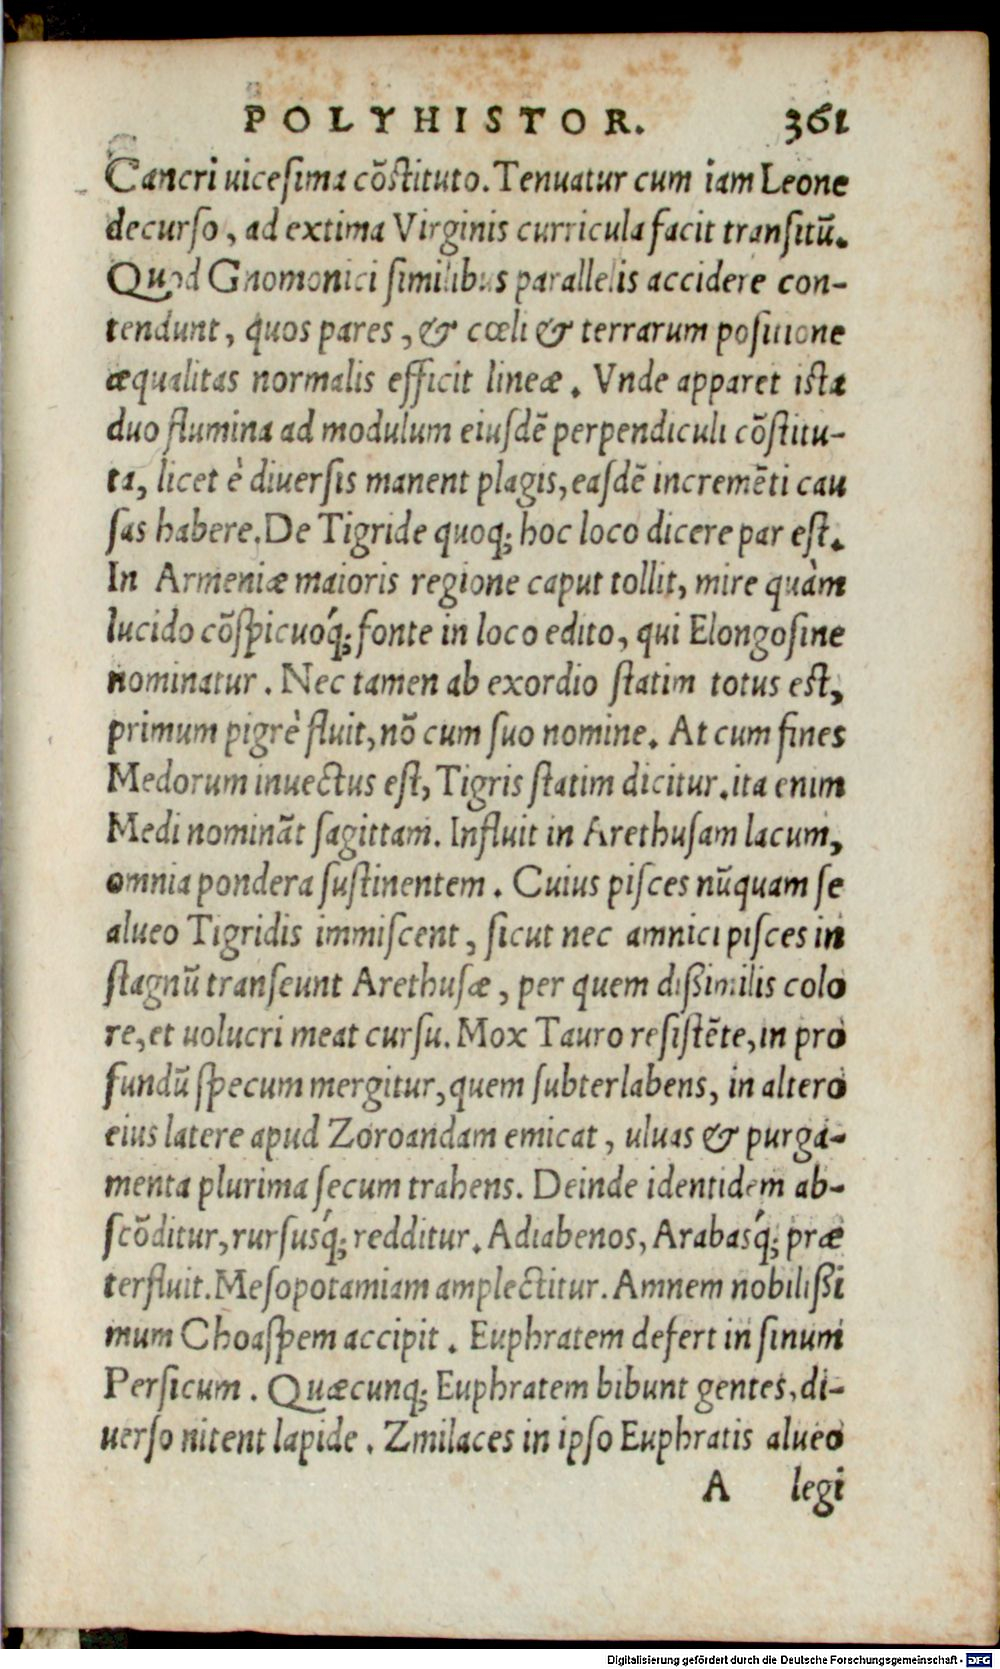 POLYHISTOR. 361
Cancri uicesima cõstituto. Tenuatur cum iam Leone
decurso, ad extima Virginis curricula facit transitũ.
Quod Gnomonici similibus parallelis accidere con-
tendunt, quos pares, & cœli & terrarum positione
æqualitas normalis efficit lineæ. Vnde apparet ista
duo flumina ad modulum eiusdẽ perpendiculi cõstitu-
ta, licet è diuersis manent plagis, easdẽ incremẽti cau
sas habere. De Tigride quoq; hoc loco dicere par est.
In Armeniæ maioris regione caput tollit, mire quàm
lucido cõspicuoq́; fonte in loco edito, qui Elongosine
nominatur. Nec tamen ab exordio statim totus est,
primum pigrè fluit, nõ cum suo nomine. At cum fines
Medorum inuectus est, Tigris statim dicitur. ita enim
Medi nominãt sagittam. Influit in Arethusam lacum,
omnia pondera sustinentem. Cuius pisces nũquam se
alueo Tigridis immiscent, sicut nec amnici pisces in
stagnũ transeunt Arethusæ, per quem dißimilis colo
re, et uolucri meat cursu. Mox Tauro resistẽte, in pro
fundũ specum mergitur, quem subterlabens, in altero
eius latere apud Zoroandam emicat, uluas & purga-
menta plurima secum trahens. Deinde identidem ab-
scõditur, rursusq́; redditur. Adiabenos, Arabasq́; præ
terfluit. Mesopotamiam amplectitur. Amnem nobilißi
mum Choaspem accipit. Euphratem defert in sinum
Persicum. Quæcunq; Euphratem bibunt gentes, di-
uerso nitent lapide. Zmilaces in ipso Euphratis alueo
A legi
Digitalisierung gefördert durch die Deutsche Forschungsgemeinschaft - DFG